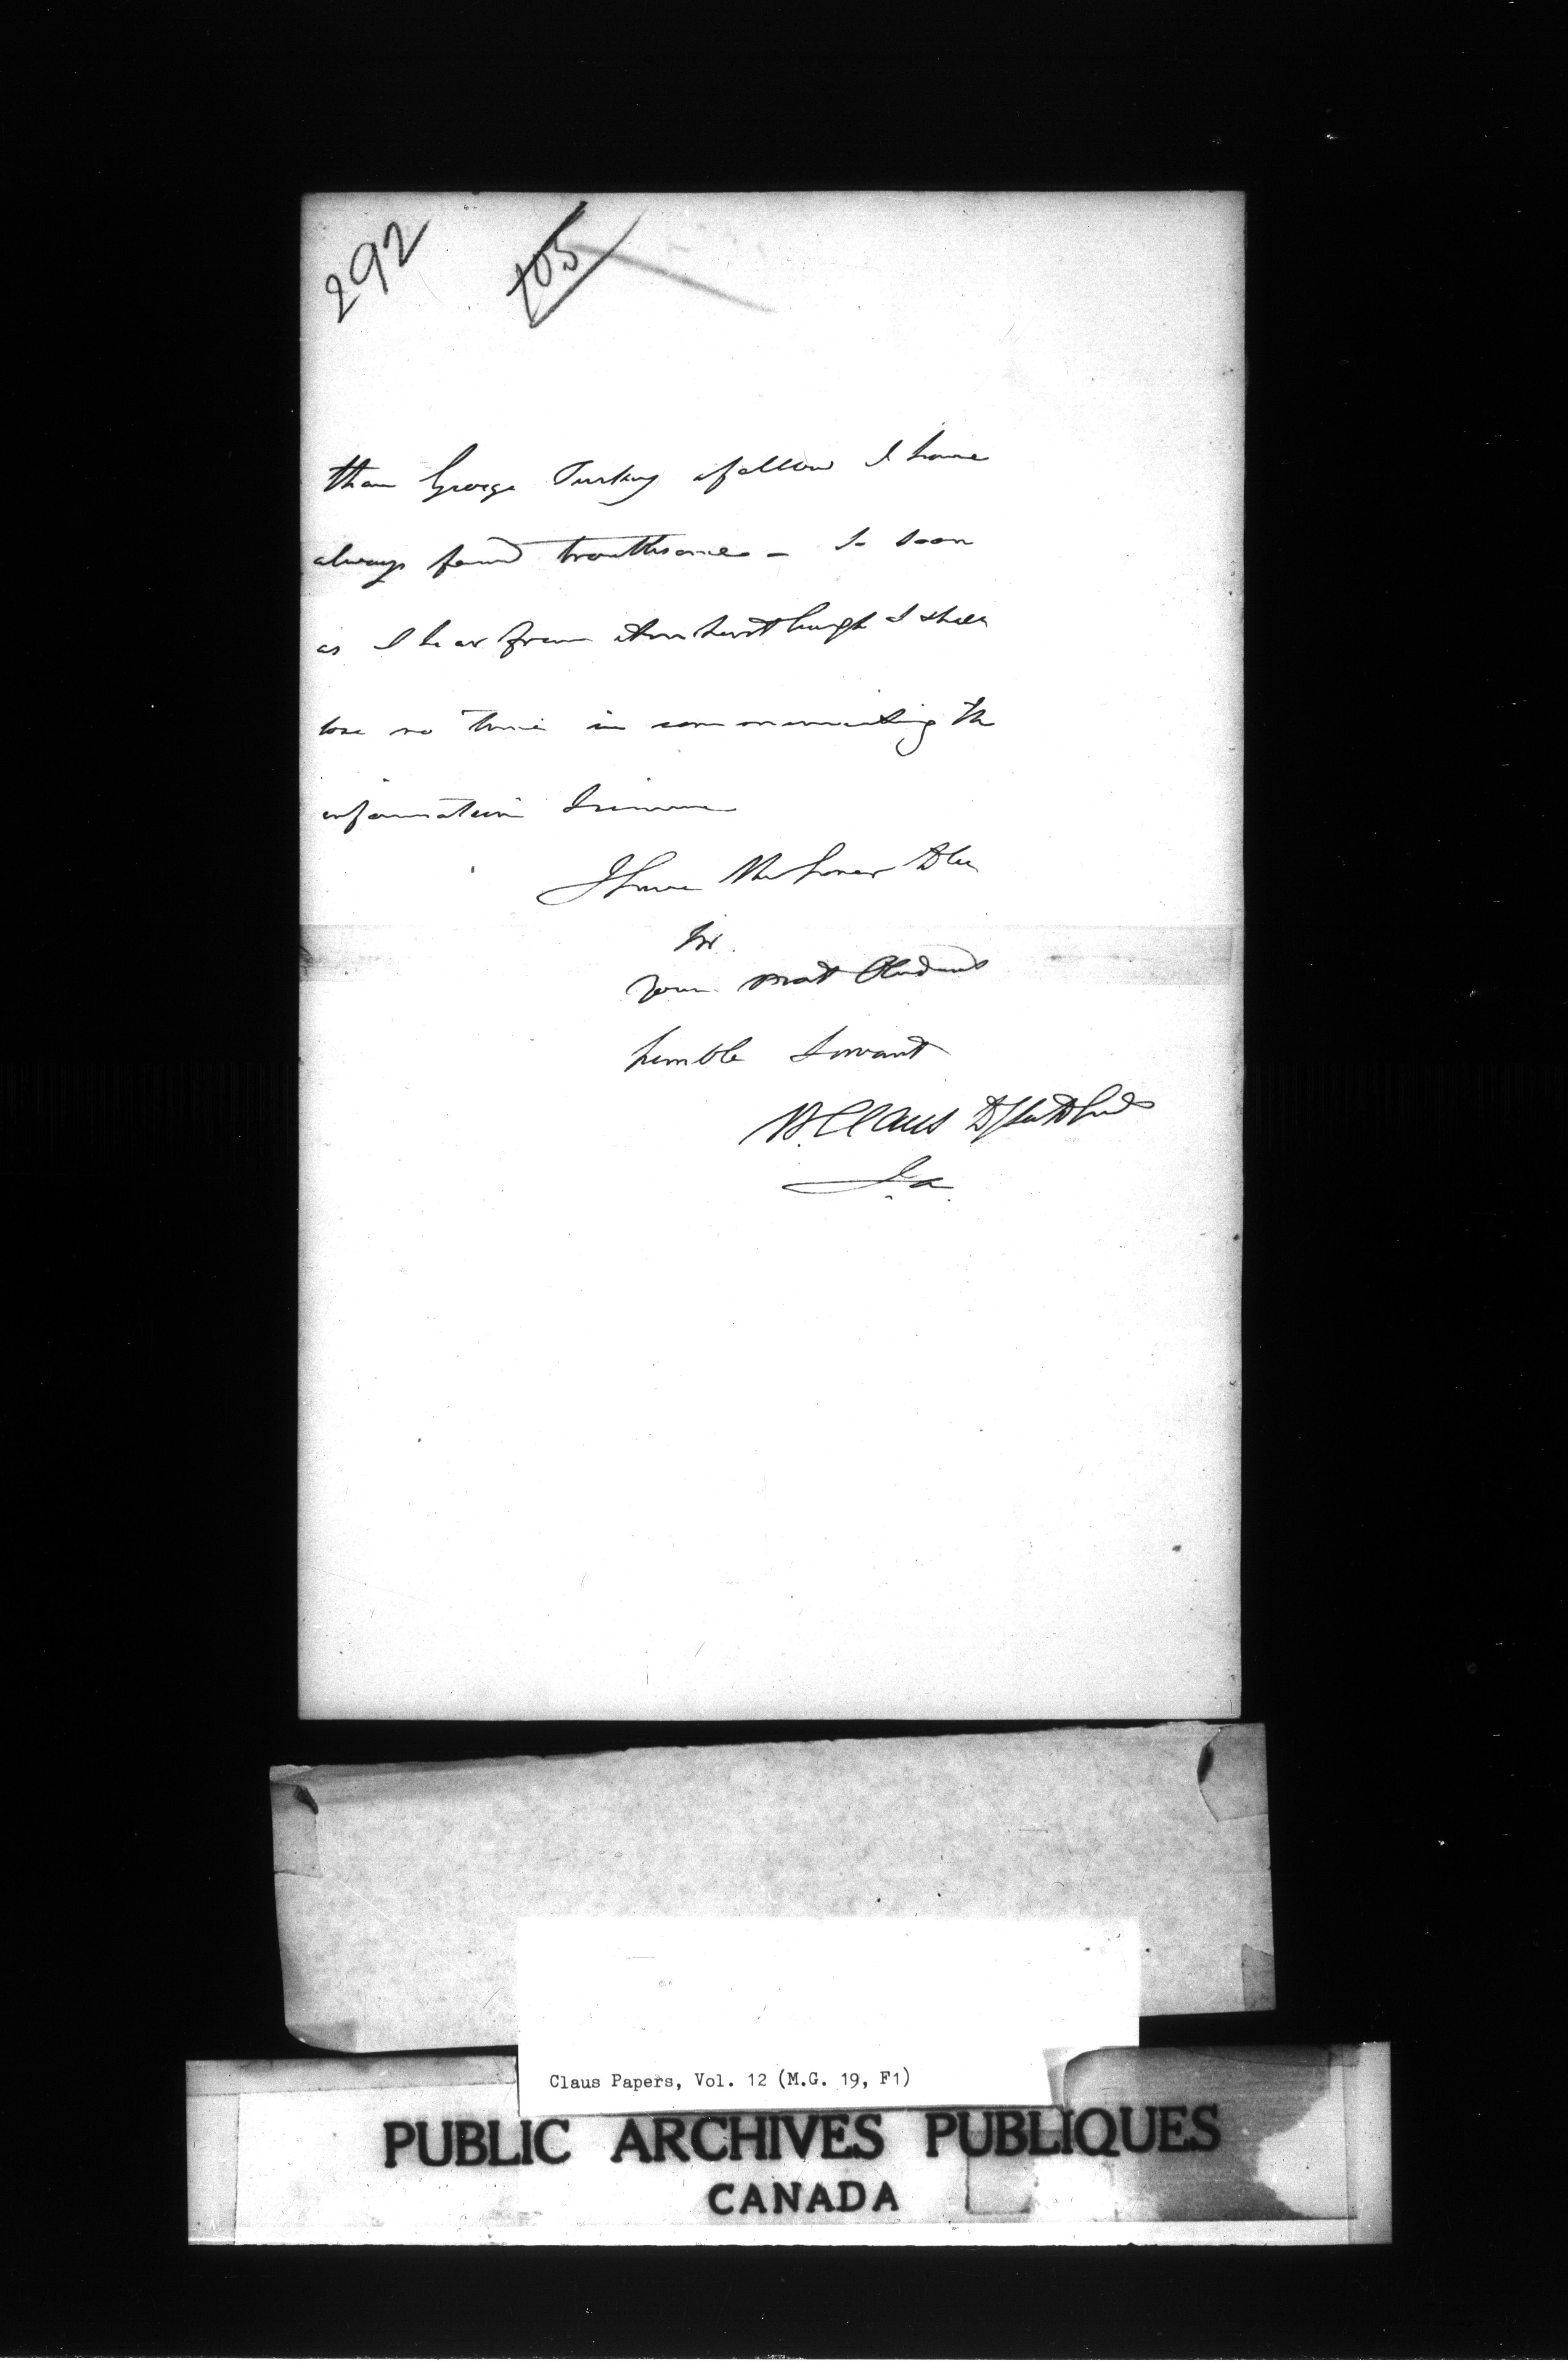 292
105
than George Turkey a fellow I have
always found troublesome - So soon
as I hear from Amherstburgh I shall
lose no time in communicating the
information I
I have the honor to be
Sir
Your most Obedient
humble Servant
W. Claus
I.A.
Claus Papers, Vol. 12 (M.G. 19, F1)
PUBLIC ARCHIVES PUBLIQUES
CANADA